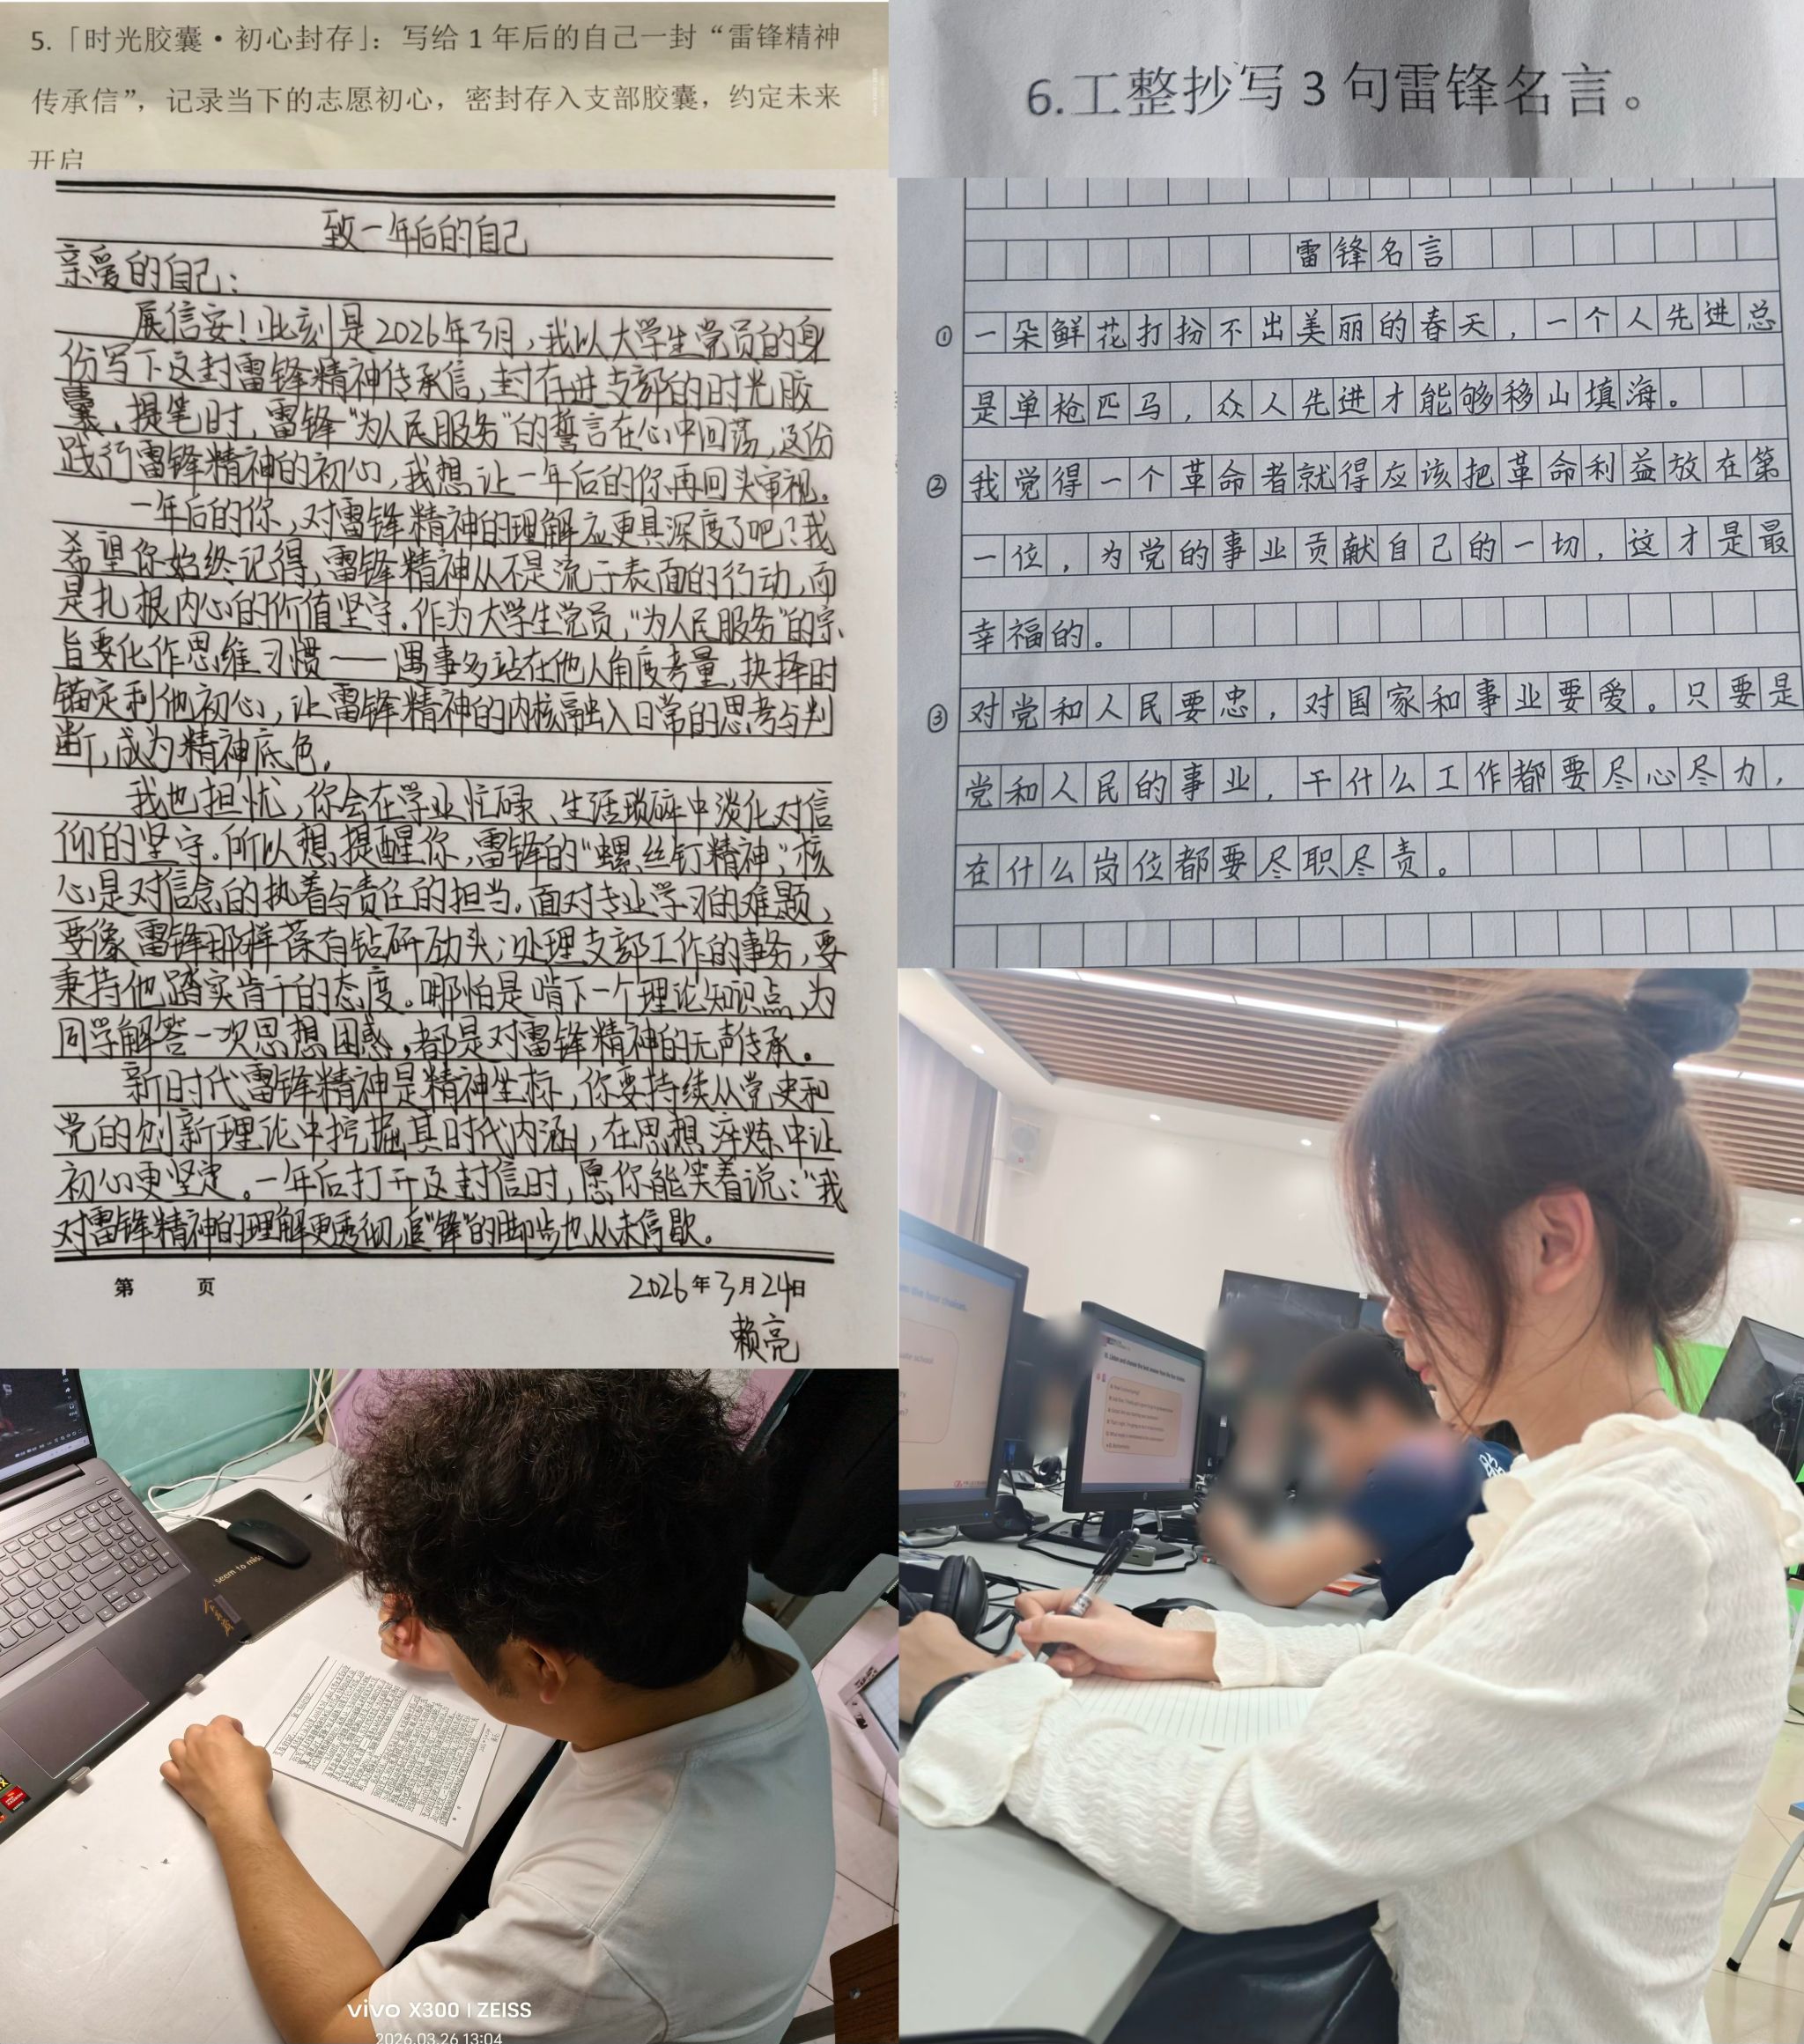 5.「时光胶囊·初心封存」：写给 1 年后的自己一封“雷锋精神
传承信”，记录当下的志愿初心，密封存入支部胶囊，约定未来
开启
致一年后的自己
亲爱的自己：
展信安！此刻是2026年3月，我以大学生党员的身
份写下这封雷锋精神传承信，封存进支部的时光胶
囊。提笔时，雷锋“为人民服务”的誓言在心中回荡，这份
践行雷锋精神的初心，我想让一年后的你再回头审视。
一年后的你，对雷锋精神的理解应更具深度了吧？我
希望你始终记得，雷锋精神从不是流于表面的行动，而
是扎根内心的价值坚守。作为大学生党员，“为人民服务”的宗
旨要化作思维习惯——遇事多站在他人角度考量，抉择时
锚定利他初心，让雷锋精神的内核融入日常的思考与判
断，成为精神底色。
我也担忧，你会在学业忙碌、生活琐碎中淡化对信
仰的坚守。所以想提醒你，雷锋的“螺丝钉精神”，核
心是对信念的执着与责任的担当。面对专业学习的难题，
要像雷锋那样葆有钻研劲头；处理支部工作的事务，要
秉持他踏实肯干的态度。哪怕是啃下一个理论知识点，为
同学解答一次思想困惑，都是对雷锋精神的无声传承。
新时代雷锋精神是精神坐标，你要持续从党史和
党的创新理论中挖掘其时代内涵，在思想淬炼中让
初心更坚定。一年后打开这封信时，愿你能笑着说：“我
对雷锋精神的理解更透彻，追“锋”的脚步也从未停歇。
第 页
2026年3月24日
赖亮
6.工整抄写 3 句雷锋名言。
雷锋名言
① 一朵鲜花打扮不出美丽的春天，一个人先进总
是单枪匹马，众人先进才能够移山填海。
② 我觉得一个革命者就得应该把革命利益放在第
一位，为党的事业贡献自己的一切，这才是最
幸福的。
③ 对党和人民要忠，对国家和事业要爱。只要是
党和人民的事业，干什么工作都要尽心尽力，
在什么岗位都要尽职尽责。
seem to mis
vivo X300 | ZEISS
2026.03.26 13:04